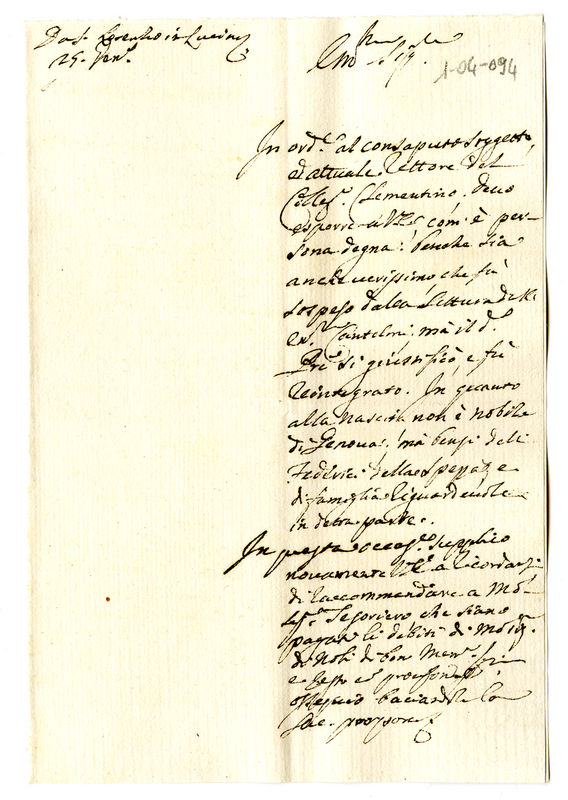 Da S. Lorenzo in Lucina
25. Gen.o
Em.
1-04-094
In ord.e al consaputo soggetto,
ed attuale Rettore del
Colleg.o Clementino. Devo
esporre à V. com' è per-
sona degna: benche sia
anche verissimo che fù
sospeso dalla Lettura
mà il d.o
Pre. si giustificò, e fù
reintegrato. In quanto
alla nascita non è nobile
di Genova, mà bensi delli
Federici della Spezza, e
di famiglia riguardevole
in detta parte.
In questa occas.e supplico
novamente V. à ricordarsi
di raccommandare a Mo.
Tesoriero che siano
pagati li debiti di Mons.
di Noli di bon. mem.
e resto con profondiss.
ossequio baciandole la
Sac. porpora